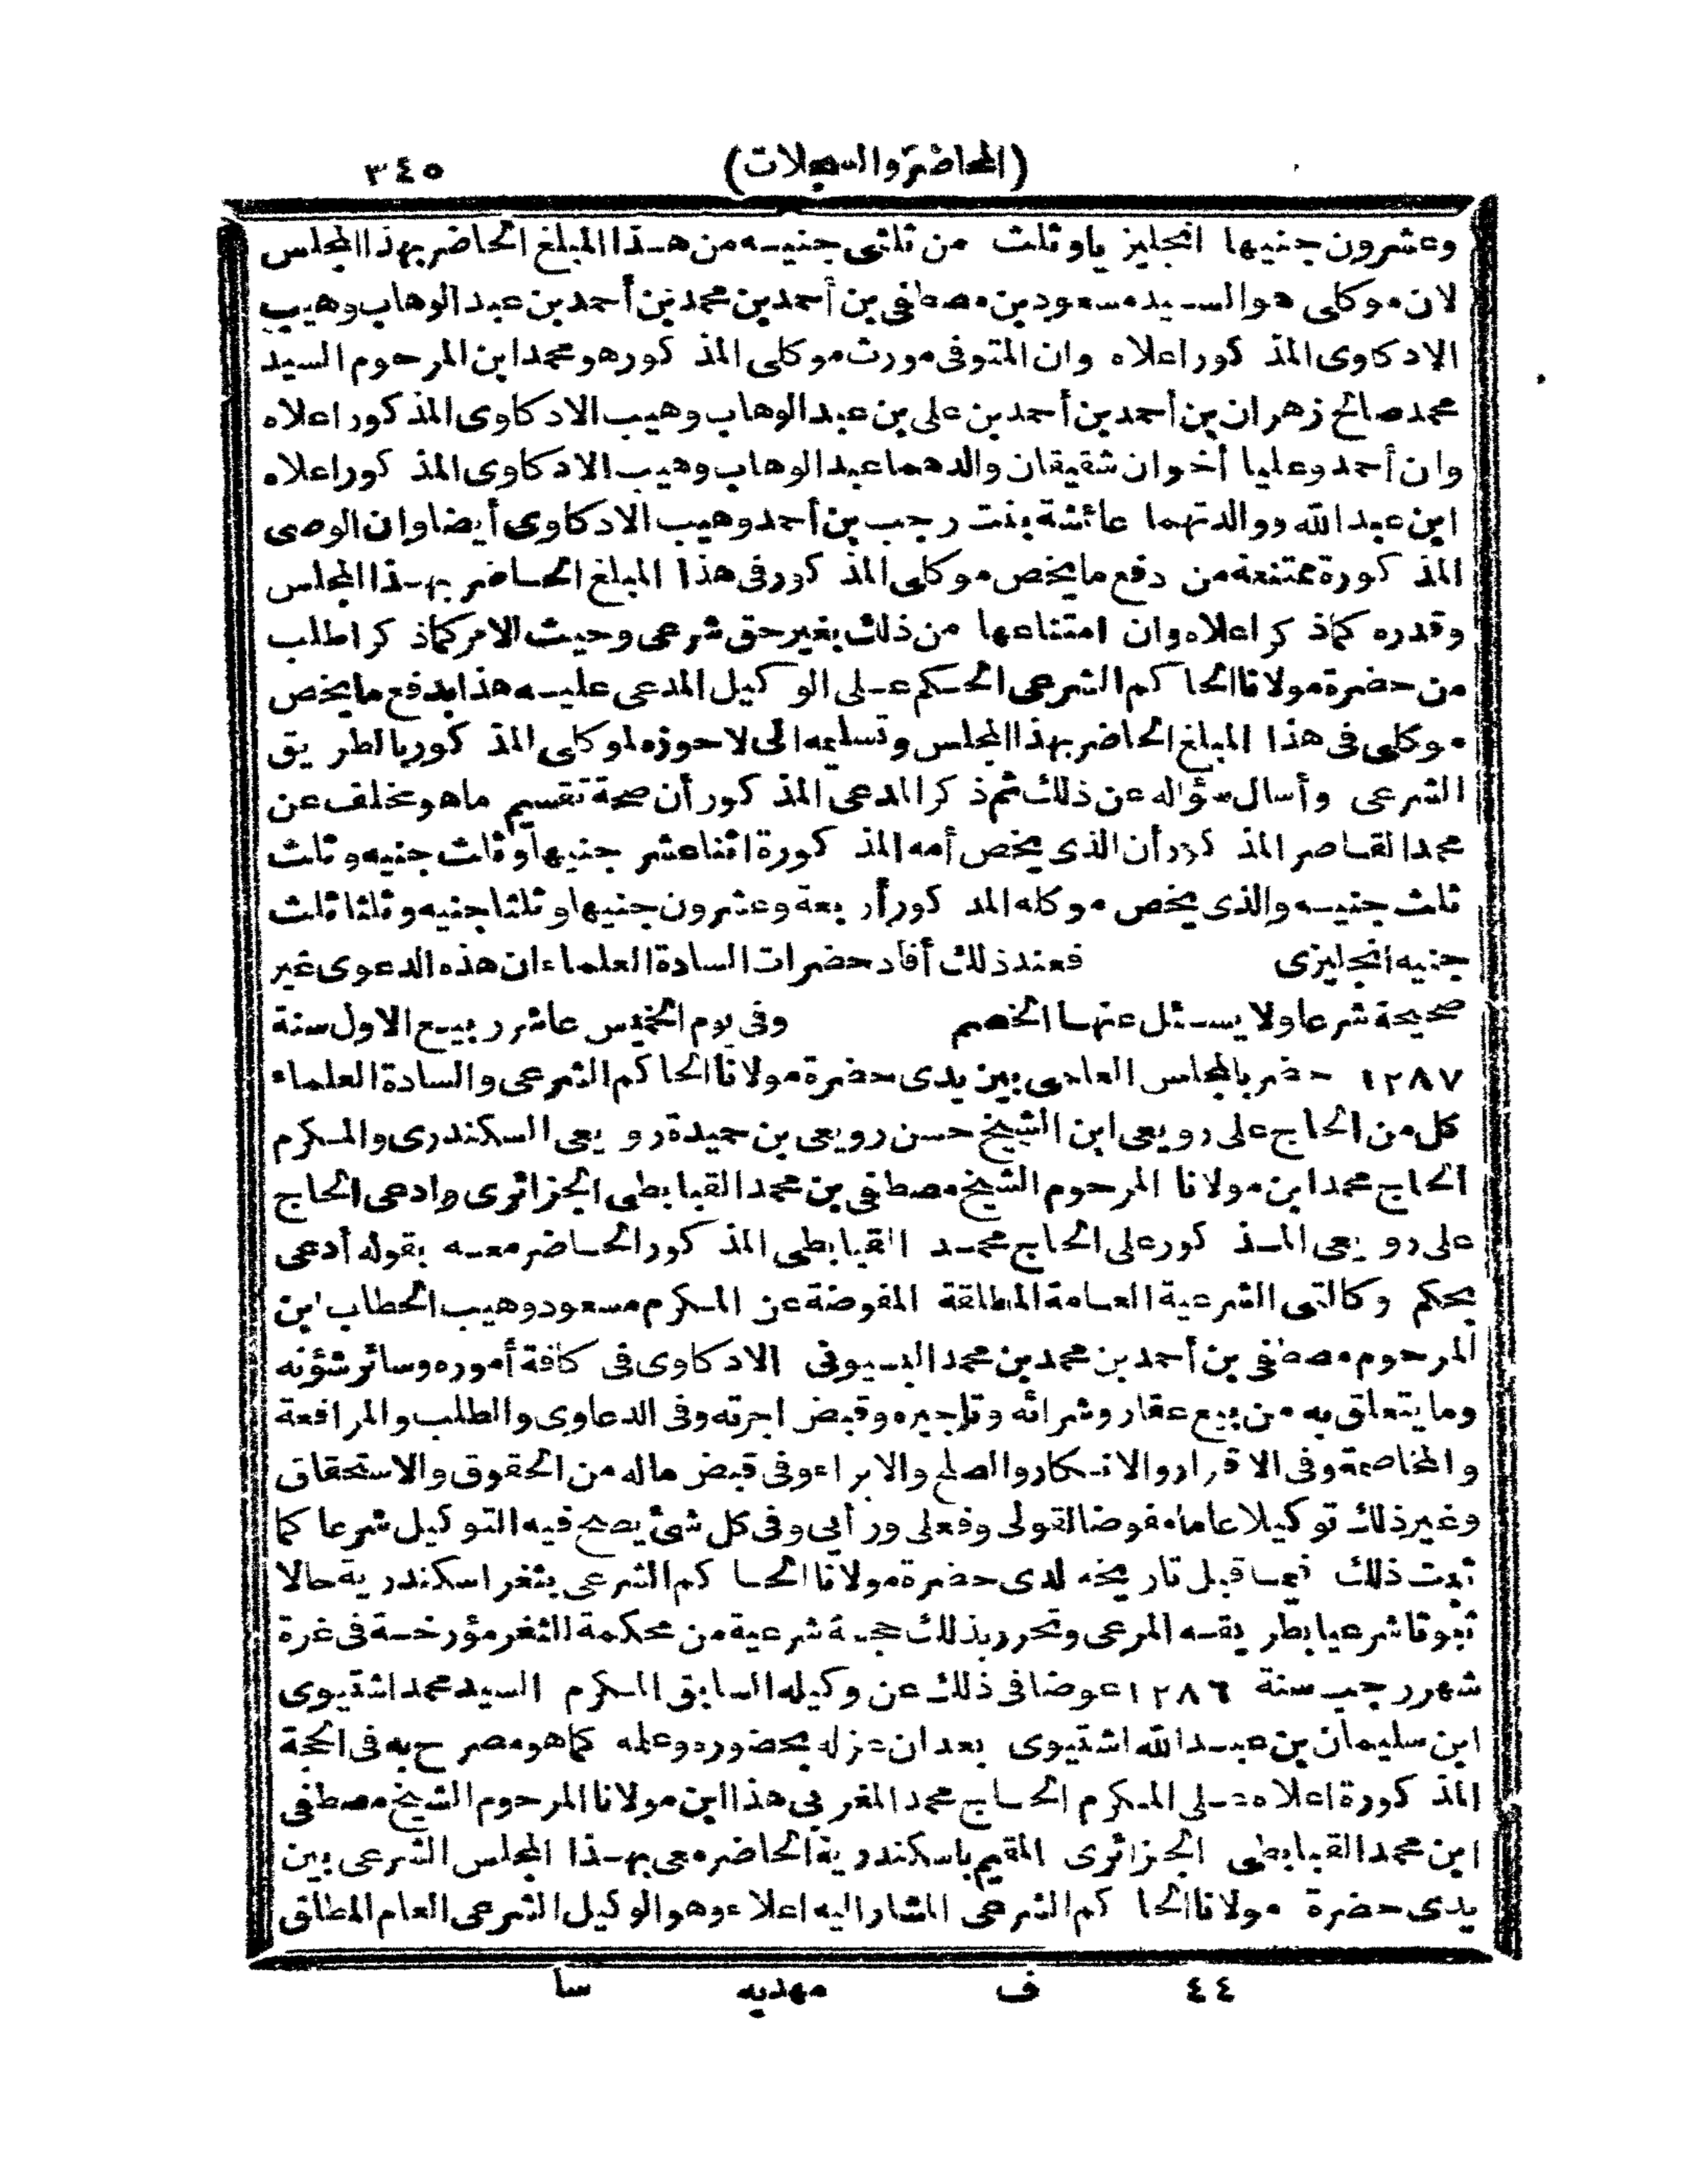 (المحاضر والسجلات) ٣٤٥
وعشرون جنيها انجليزيا وثلث من ثلثى جنيه من هذا المبلغ الحاضر بهذا المجلس
لان موكلى هو السيد مسعود بن مصطفى بن أحمد بن محمد بن أحمد بن عبد الوهاب وهيب
الادكاوى المذكور اعلاه وان المتوفى مورث موكلى المذكور هو محمد ابن المرحوم السيد
محمد صالح زهران بن أحمد بن أحمد بن على بن عبد الوهاب وهيب الادكاوى المذكور اعلاه
وان أحمد وعليا أخوان شقيقان والدهما عبد الوهاب وهيب الادكاوى المذكور اعلاه
ابن عبد الله ووالدتهما عائشة بنت رجب بن أحمد وهيب الادكاوى أيضا وان الوصى
المذكورة ممتنعة من دفع ما يخص موكلى المذكور فى هذا المبلغ الحاضر بهذا المجلس
وقدره كما ذكر اعلاه وان امتناعها من ذلك بغير حق شرعى وحيث الامر كما ذكر اطلب
من حضرة مولانا الحاكم الشرعى الحكم على الوكيل المدعى عليه هذا بدفع ما يخص
موكلى فى هذا المبلغ الحاضر بهذا المجلس وتسليمه الى لاحوزه لموكلى المذكور بالطريق
الشرعى وأسال سؤاله عن ذلك ثم ذكر المدعى المذكور أن صحة تقسيم ما هو مخلف عن
محمد القاصر المذكور أن الذى يخص أمه المذكورة اثنا عشر جنيها وثلث جنيه وثلث
ثلث جنيه والذى يخص موكله المذكور أربعة وعشرون جنيها وثلثا جنيه وثلثا ثلث
جنيه انجليزى فعند ذلك أفاد حضرات السادة العلماء ان هذه الدعوى غير
صحيحة شرعا ولا يسئل عنها الخصم وفى يوم الخميس عاشر ربيع الاول سنة
١٢٨٧ حضر بالمجلس العلمى بين يدى حضرة مولانا الحاكم الشرعى والسادة العلماء
كل من الحاج على رويعى ابن الشيخ حسن رويعى بن حميدة رويعى السكندرى والمكرم
الحاج محمد ابن مولانا المرحوم الشيخ مصطفى بن محمد القبابطى الجزائرى وادعى الحاج
على رويعى المذكور على الحاج محمد القبابطى المذكور الحاضر معه بقوله أدعى
بحكم وكالتى الشرعية العامة المطلقة المفوضة عن المكرم مسعود وهيب الحطاب ابن
المرحوم مصطفى بن أحمد بن محمد بن محمد البسيونى الادكاوى فى كافة أموره وسائر شؤنه
وما يتعلق به من بيع عقار وشرائه وتاجيره وقبض اجرته وفى الدعاوى والطلب والمرافعة
والمخاصمة وفى الاقرار والانكار والصلح والابراء وفى قبض ماله من الحقوق والاستحقاق
وغير ذلك توكيلا عاما مفوضا لقولى وفعلى ورأيى وفى كل شئ يصح فيه التوكيل شرعا كما
ثبت ذلك فيما قبل تاريخه لدى حضرة مولانا الحاكم الشرعى بثغر اسكندرية حالا
ثبوتا شرعيا بطريقه المرعى وتحرر بذلك حجة شرعية من محكمة الثغر مؤرخة فى غرة
شهر رجب سنة ١٢٨٦ عوضا فى ذلك عن وكيله السابق المكرم السيد محمد اشتيوى
ابن سليمان بن عبد الله اشتيوى بعد ان عزله بحضوره وعلمه كما هو مصرح به فى الحجة
المذكورة اعلاه على المكرم الحاج محمد المغربى هذا ابن مولانا المرحوم الشيخ مصطفى
ابن محمد القبابطى الجزائرى المقيم باسكندرية الحاضر معى بهذا المجلس الشرعى بين
يدى حضرة مولانا الحاكم الشرعى المشار اليه اعلاه وهو الوكيل الشرعى العام المطلق
٤٤ ف مهديه سا